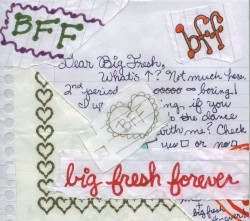 BFF
bff
Dear Big Fresh,
What's ↑? Not much here.
2nd period ooooo ∞ boring!
up ing, if you
BFF the dance
with me? Check
yes □ or no □
big fresh forever
big fresh
forever